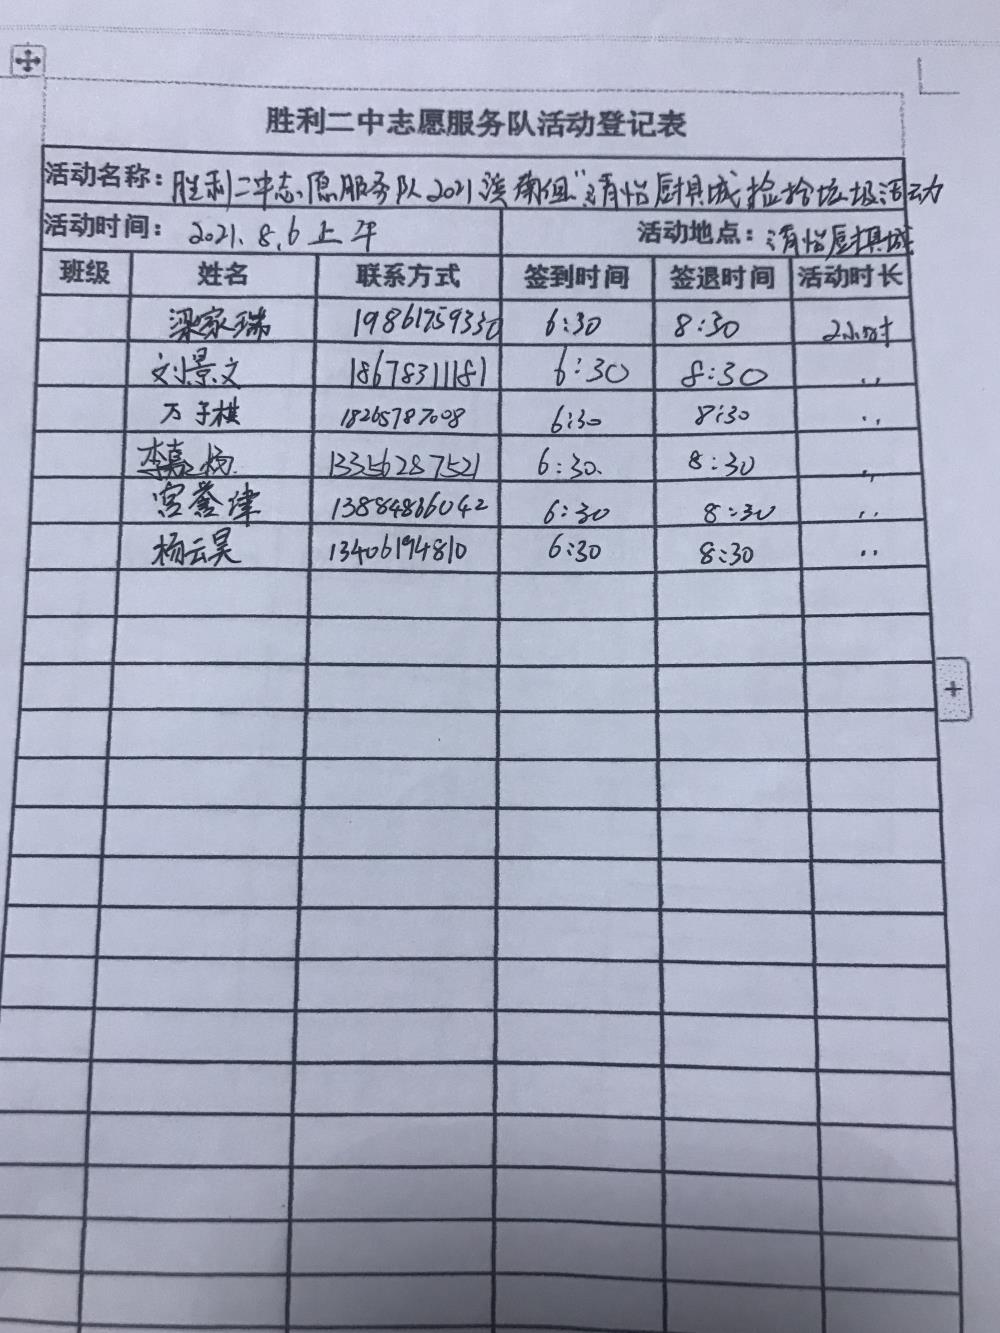 胜利二中志愿服务队活动登记表
活动名称：胜利二中志愿服务队2021滨南组"清怡厨具城捡拾垃圾活动
活动时间：2021.8.6上午 活动地点：清怡厨具城
班级 姓名 联系方式 签到时间 签退时间 活动时长
梁家瑞 19861759330 6:30 8:30 2小时
刘景文 18678311181 6:30 8:30 ..
万子棋 18265787008 6:30 8:30 ..
李嘉炀 13356287521 6:30. 8:30 ..
宫誉津 13884836042 6:30 8:30 ..
杨云昊 13406194810 6:30 8:30 ..